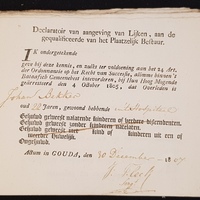 Declaratoir van aangeving van Lijken, aan de
gequalificeerde van het Plaatzelijk Bestuur.
IK ondergetekende
geve bij deze kennis, en zulks ter voldoening aan het 24 Art.
der Ordonnantie op het Recht van Successie, alomme binnen 't
Bataafsch Gemeenebest intevoorderen, bij Hun Hoog Mogende
gearresteerd den 4 October 1805, dat Overleden is
Johan Bekker
oud 22 Jaren, gewoond hebbende
Gehuwd geweest nalatende kinderen of verdere descendenten.
Gehuwd geweest zonder kinderen natelaten.
Gehuwd geweest met kind of kinderen uit een of
Ongehuwd.
Actum in GOUDA, den 30 December 1807